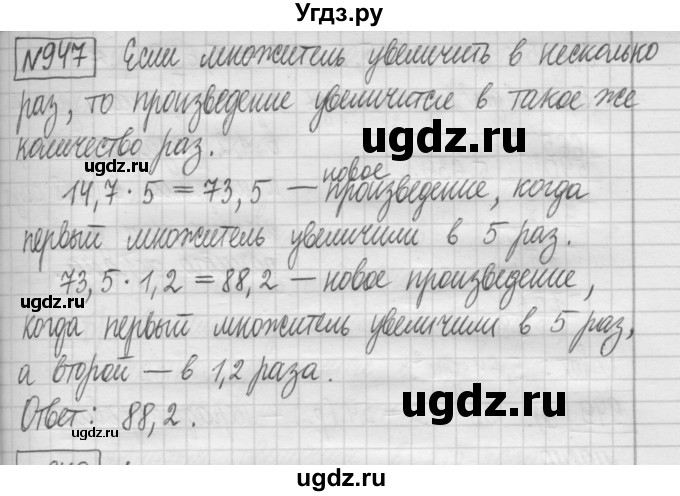 Угдз.ру
№947 Если множитель увеличить в несколько
раз, то произведение увеличится в такое же
ugdz.ru
количество раз.
ugdz.ru
новое
14,7 · 5 = 73,5 — произведение, когда
первый множитель увеличили в 5 раз.
73,5 · 1,2 = 88,2 — новое произведение,
ugdz.ru
когда первый множитель увеличили в 5 раз,
а второй — в 1,2 раза.
ugdz.ru
Ответ: 88,2.
ugdz.ru
ugdz.ru